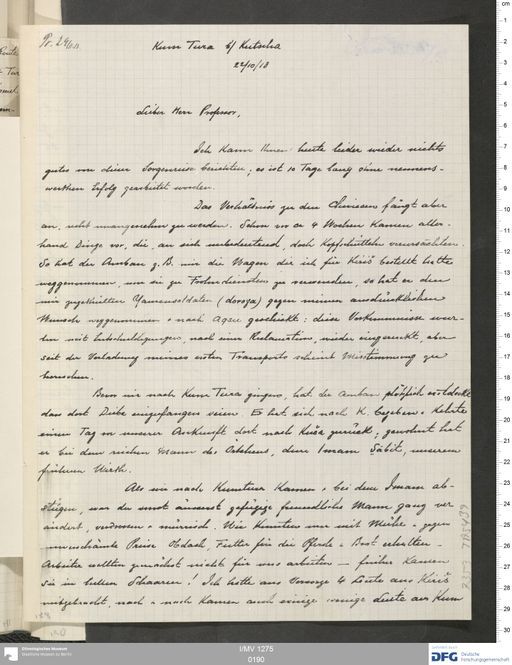 Kum Tura b/ Kutscha
22/10/13
Lieber Herr Professor,
Ich kann Ihnen heute leider wieder nichts
gutes von dieser Sorgenreise berichten; es ist 10 Tage lang ohne nennens-
werthen Erfolg gearbeitet worden.
Das Verhältniss zu den Chinesen fängt aber
an, recht unangenehm zu werden. Schon vor ca 4 Wochen kamen aller-
hand Dinge vor, die, an sich unbedeutend, doch Kopfschütteln verursachten.
So hat der Amban z.B. mir die Wagen die ich für Kiriš bestellt hatte
weggenommen, um sie zu Frohndiensten zu verwenden, so hat er den
mir zugetheilten Yamensoldaten (doroga) gegen meinen ausdrücklichen
Wunsch weggenommen u. nach Aqsu geschickt: diese Vorkommnisse wur-
den mit Entschuldigungen, nach einer Reclamation, wieder eingerenkt, aber
seit der Verladung meines ersten Transports scheint Misstimmung zu
herrschen.
Bevor wir nach Kum Tura gingen, hat der Amban plötzlich entdeckt
dass dort Diebe einzufangen seien. Er hat sich nach K. begeben u. kehrte
einen Tag vor unserer Ankunft dort nach Kuča zurück; gewohnt hat
er bei dem reichen Mann des Örtchens, dem Imam Sabit, unserem
früheren Wirth.
Als wir nach Kumtura kamen u. bei dem Imam ab-
stiegen, war der sonst äusserst gefügige freundliche Mann ganz ver
ändert, verdrossen u. mürrisch. Wir konnten nur mit Mühe u. gegen
unverschämte Preise Obdach, Futter für die Pferde u. Brot erhalten.
Arbeiter wollten zunächst nicht für uns arbeiten — früher kamen
sie in hellen Schaaren! Ich hatte aus Vorsorge 4 Leute aus Kiriš
mitgebracht, nach u. nach kamen auch einige wenige Leute aus Kum
Ethnologisches Museum
Staatliche Museen zu Berlin
I/MV 1275
0190
DFG
Deutsche
Forschungsgemeinschaft